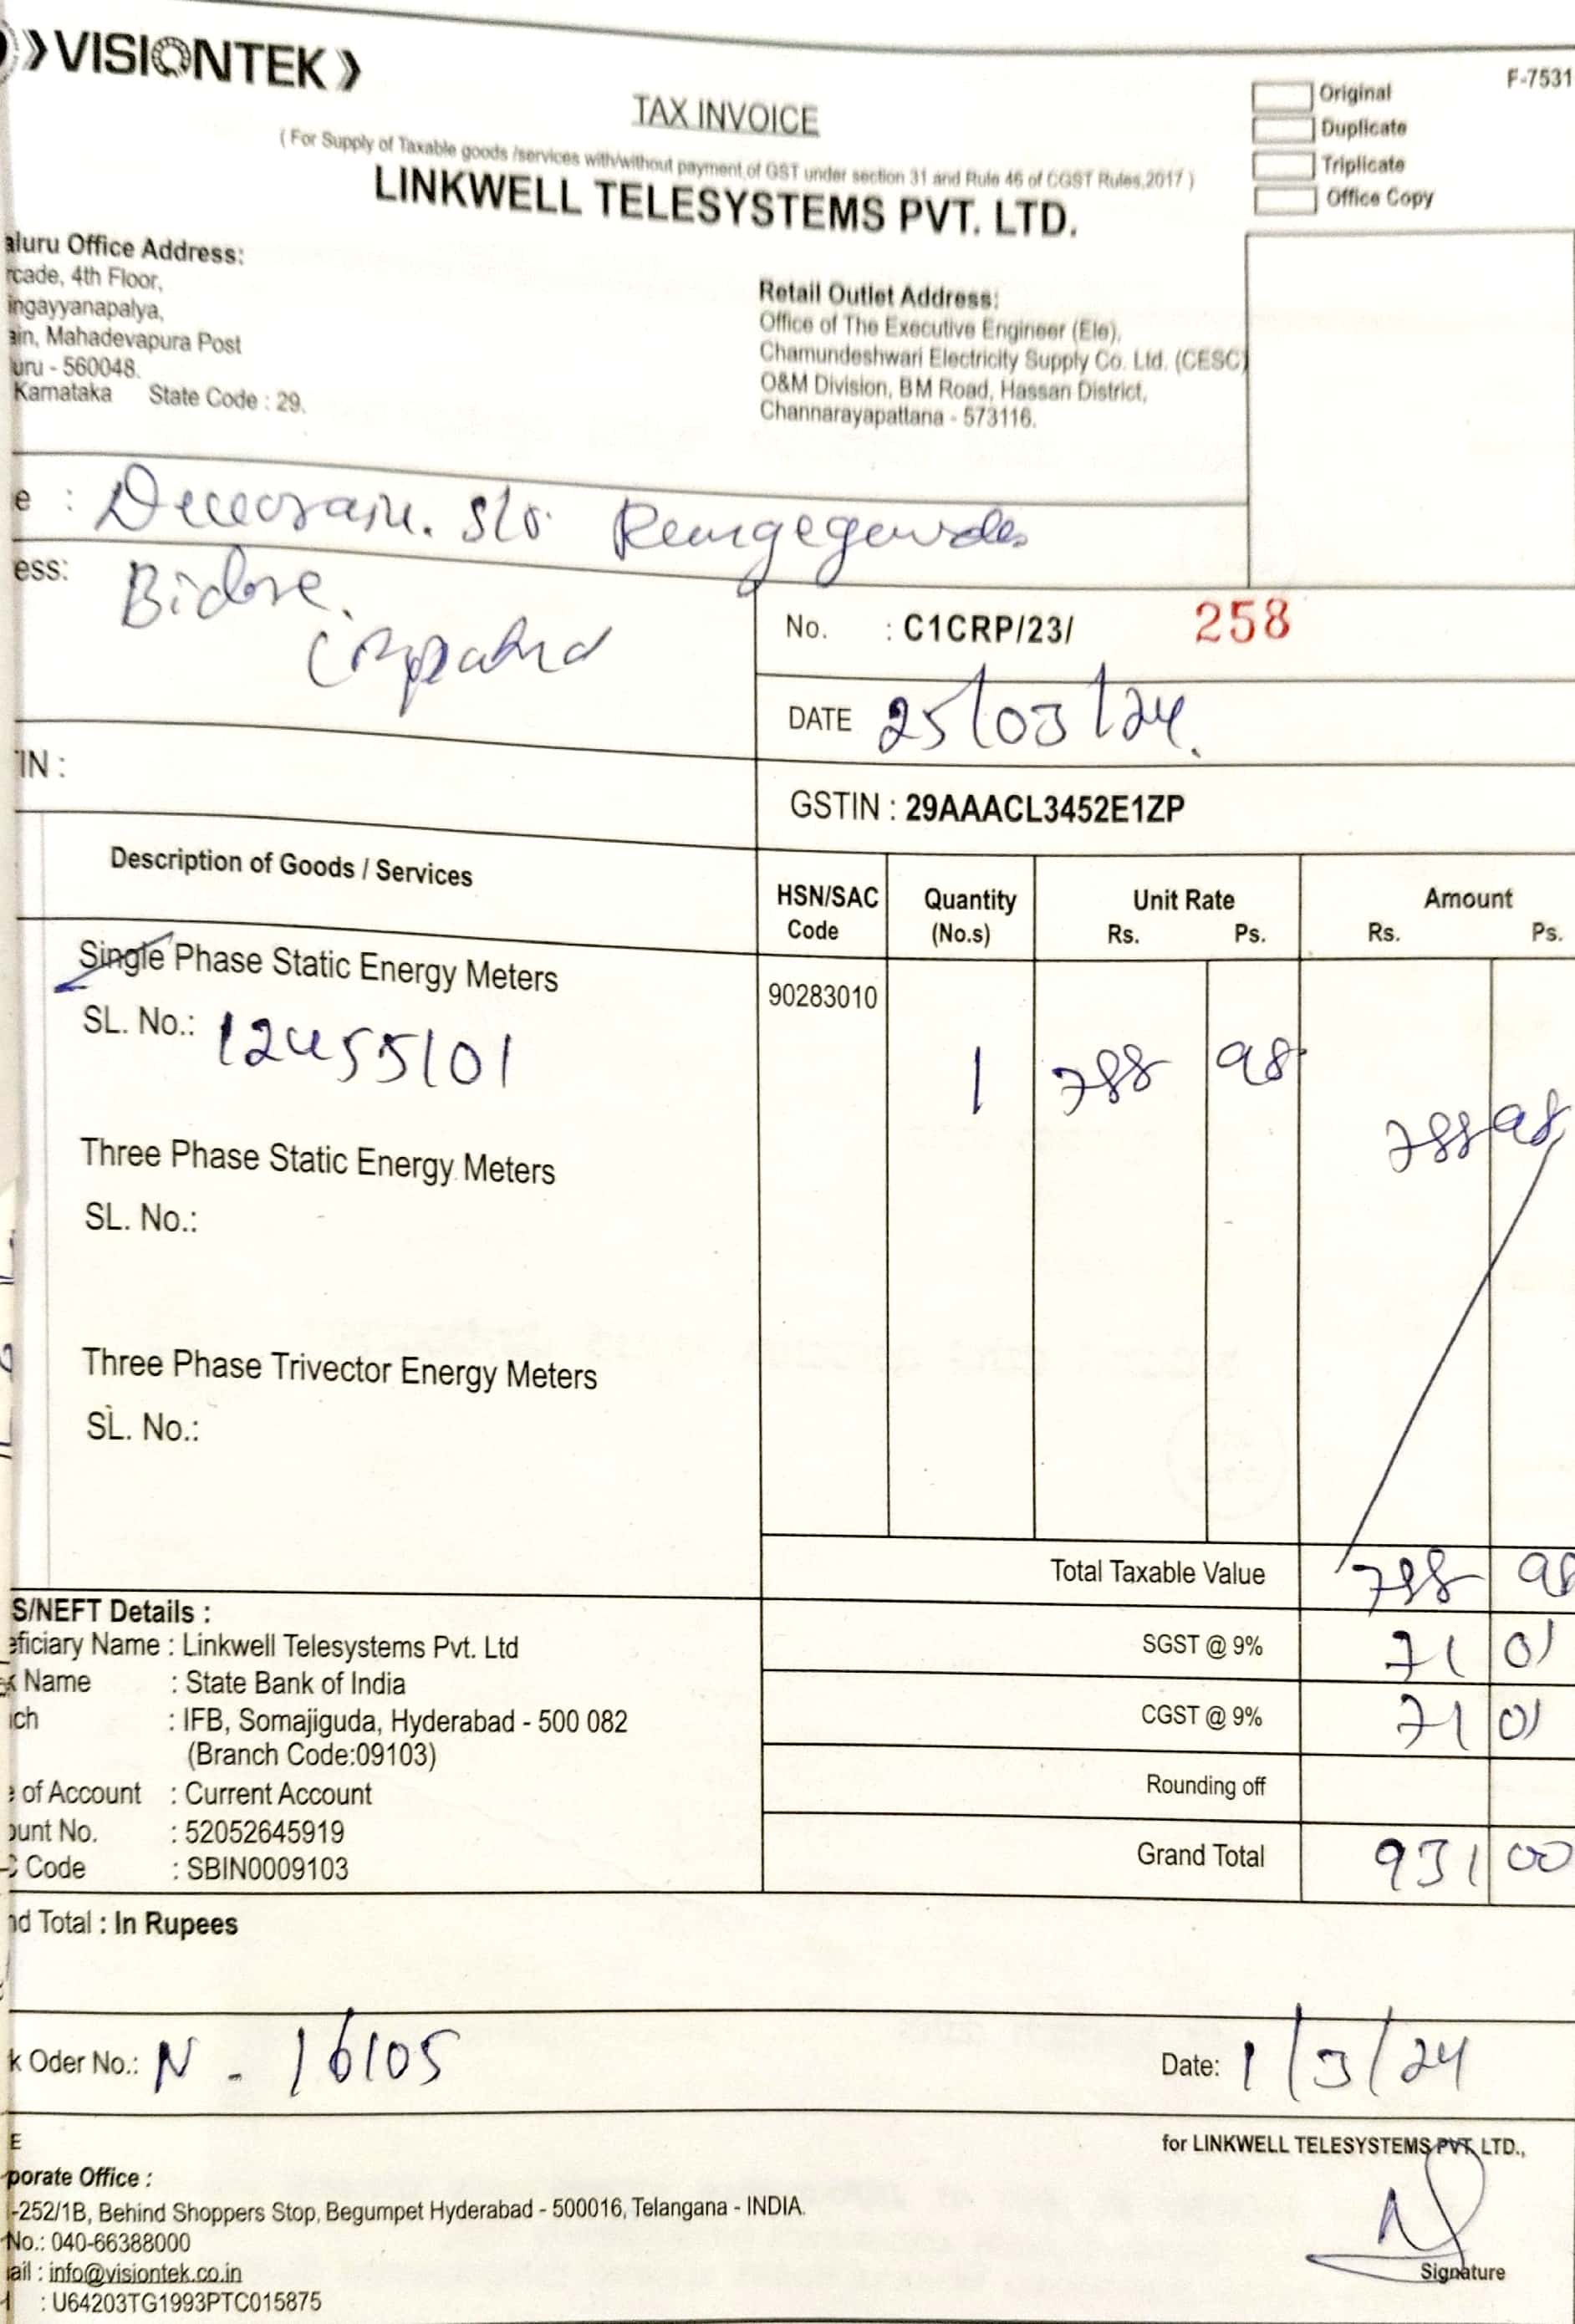 VISIONTEK
F-7531
TAX INVOICE
Original
Duplicate
Triplicate
Office Copy
( For Supply of Taxable goods /services with/without payment of GST under section 31 and Rule 46 of CGST Rules,2017 )
LINKWELL TELESYSTEMS PVT. LTD.
aluru Office Address:
rcade, 4th Floor,
ingayyanapalya,
ain, Mahadevapura Post
uru - 560048.
Karnataka State Code : 29.
Retail Outlet Address:
Office of The Executive Engineer (Ele),
Chamundeshwari Electricity Supply Co. Ltd. (CESC)
O&M Division, BM Road, Hassan District,
Channarayapattana - 573116.
e : S/o
ess: Bidare
No. : C1CRP/23/ 258
DATE 25/03/24.
TIN :
GSTIN : 29AAACL3452E1ZP
Description of Goods / Services
HSN/SAC Code
Quantity (No.s)
Unit Rate Rs. Ps.
Amount Rs. Ps.
Single Phase Static Energy Meters
90283010
SL. No.: 12455101
1 788 98
788 98
Three Phase Static Energy Meters
SL. No.:
Three Phase Trivector Energy Meters
SL. No.:
Total Taxable Value 788 98
SGST @ 9% 71 01
CGST @ 9% 71 01
Rounding off
Grand Total 931 00
S/NEFT Details :
eficiary Name : Linkwell Telesystems Pvt. Ltd
k Name : State Bank of India
ch : IFB, Somajiguda, Hyderabad - 500 082
(Branch Code:09103)
e of Account : Current Account
ount No. : 52052645919
C Code : SBIN0009103
nd Total : In Rupees
k Oder No.: N - 16105
Date: 1/3/24
E
for LINKWELL TELESYSTEMS PVT. LTD.,
porate Office :
-252/1B, Behind Shoppers Stop, Begumpet Hyderabad - 500016, Telangana - INDIA.
No.: 040-66388000
ail : info@visiontek.co.in
: U64203TG1993PTC015875
Signature